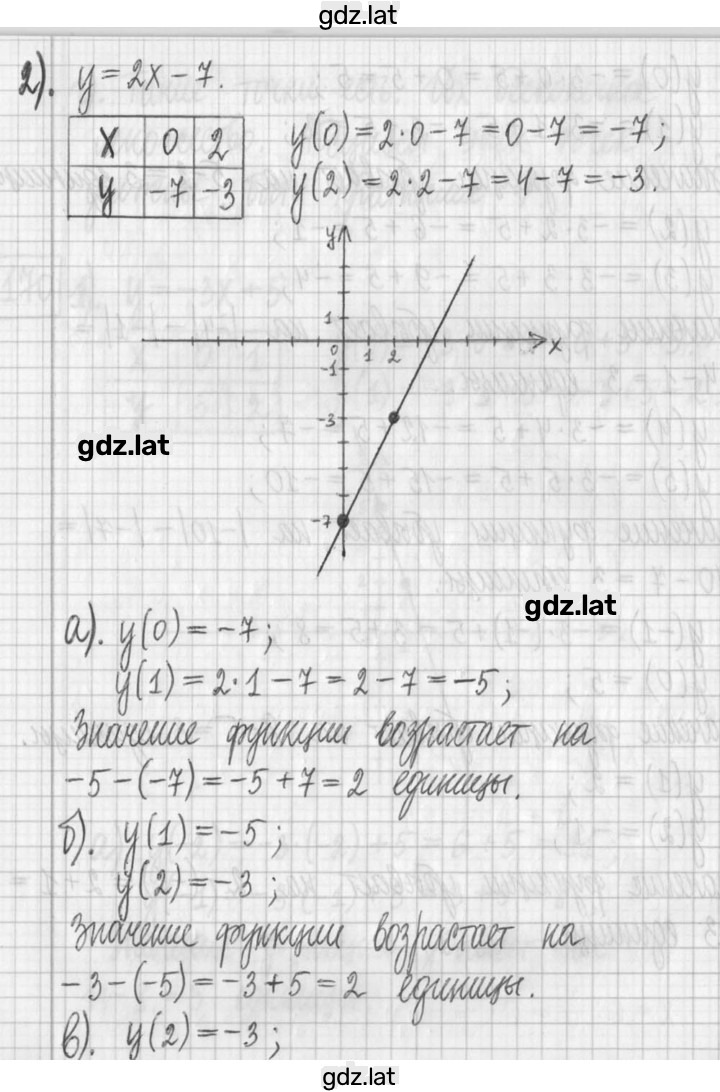 gdz.lat
2). y = 2x - 7.
x 0 2
y -7 -3
y(0) = 2·0 - 7 = 0 - 7 = -7;
y(2) = 2·2 - 7 = 4 - 7 = -3.
y
1
0 1 2 x
-1
-3
gdz.lat
-7
gdz.lat
а). y(0) = -7;
y(1) = 2·1 - 7 = 2 - 7 = -5;
Значение функции возрастает на
-5 - (-7) = -5 + 7 = 2 единицы.
б). y(1) = -5;
y(2) = -3;
Значение функции возрастает на
-3 - (-5) = -3 + 5 = 2 единицы.
в). y(2) = -3;
gdz.lat